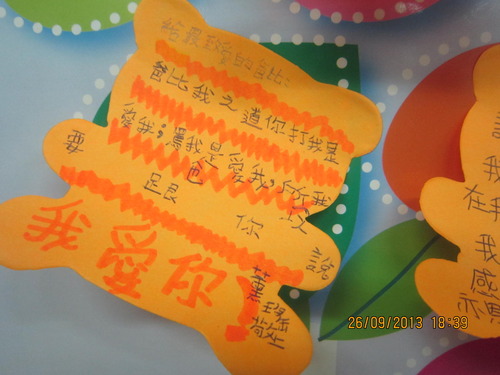 給最致愛的爸比:
爸比我之道你打我是
愛我,罵我是愛我,所以我
要跟你說
我愛你!
我
在我
我
感
26/09/2013 18:39